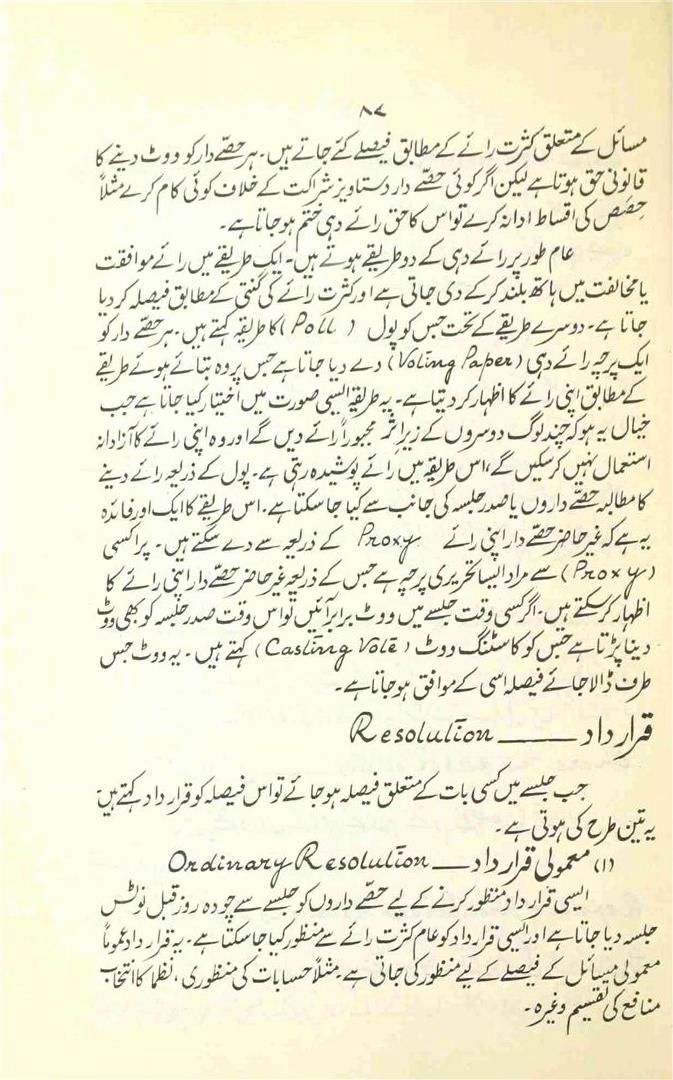 ۸۷
مسائل کے متعلق کثرت رائے کے مطابق فیصلے کئے جاتے ہیں۔ ہر حصّے دار کو ووٹ دینے کا
قانونی حق ہوتا ہے لیکن اگر کوئی حصّے دار دستاویز شراکت کے خلاف کوئی کام کرے مثلاً
حِصَص کی اقساط ادا نہ کرے تو اس کا حق رائے دہی ختم ہو جاتا ہے۔
عام طور پر رائے دہی کے دو طریقے ہوتے ہیں۔ ایک طریقے میں رائے موافقت
یا مخالفت میں ہاتھ بلند کرکے دی جاتی ہے اور کثرت رائے کی گنتی کے مطابق فیصلہ کر دیا
جاتا ہے۔ دوسرے طریقے کے تحت جس کو پول (Poll) کا طریقہ کہتے ہیں۔ ہر حصّے دار کو
ایک پرچہ رائے دہی (Voting Paper) دے دیا جاتا ہے جس پر وہ بتائے ہوئے طریقے
کے مطابق اپنی رائے کا اظہار کر دیتا ہے۔ یہ طریقہ ایسی صورت میں اختیار کیا جاتا ہے جب
خیال یہ ہو کہ چند لوگ دوسروں کے زیر اثر مجبوراً رائے دیں گے اور وہ اپنی رائے کا آزادانہ
استعمال نہیں کر سکیں گے، اس طریقہ میں رائے پوشیدہ رہتی ہے۔ پول کے ذریعہ رائے دینے
کا مطالبہ حصّے داروں یا صدر جلسہ کی جانب سے کیا جا سکتا ہے۔ اس طریقے کا ایک اور فائدہ
یہ ہے کہ غیر حاضر حصّے دار اپنی رائے Proxy کے ذریعہ سے دے سکتے ہیں۔ پراکسی
(Proxy) سے مراد ایسا تحریری پرچہ ہے جس کے ذریعہ غیر حاضر حصّے دار اپنی رائے کا
اظہار کر سکتے ہیں۔ اگر کسی وقت جلسے میں ووٹ برابر آئیں تو اس وقت صدر جلسہ کو بھی ووٹ
دینا پڑتا ہے جس کو کاسٹنگ ووٹ (Casting Vote) کہتے ہیں۔ یہ ووٹ جس
طرف ڈالا جائے فیصلہ اسی کے موافق ہو جاتا ہے۔
قرارداد ــــــ Resolution
جب جلسے میں کسی بات کے متعلق فیصلہ ہو جائے تو اس فیصلہ کو قرارداد کہتے ہیں
یہ تین طرح کی ہوتی ہے۔
(۱) معمولی قرارداد ــــ Ordinary Resolution
ایسی قرارداد منظور کرنے کے لیے حصّے داروں کو جلسے سے چودہ روز قبل نوٹس
جلسہ دیا جاتا ہے اور ایسی قرارداد کو عام کثرت رائے سے منظور کیا جا سکتا ہے۔ یہ قرارداد عموماً
معمولی مسائل کے فیصلے کے لیے منظور کی جاتی ہے مثلاً حسابات کی منظوری، نظما کا انتخاب
منافع کی تقسیم وغیرہ۔